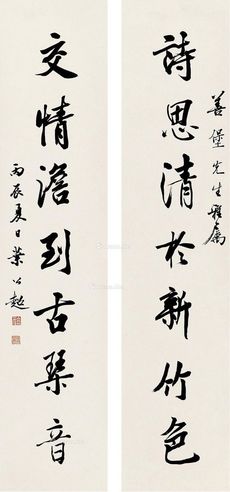 詩思清於新竹色
善堡先生雅屬
交情澹到古琹音
丙辰夏日葉公超